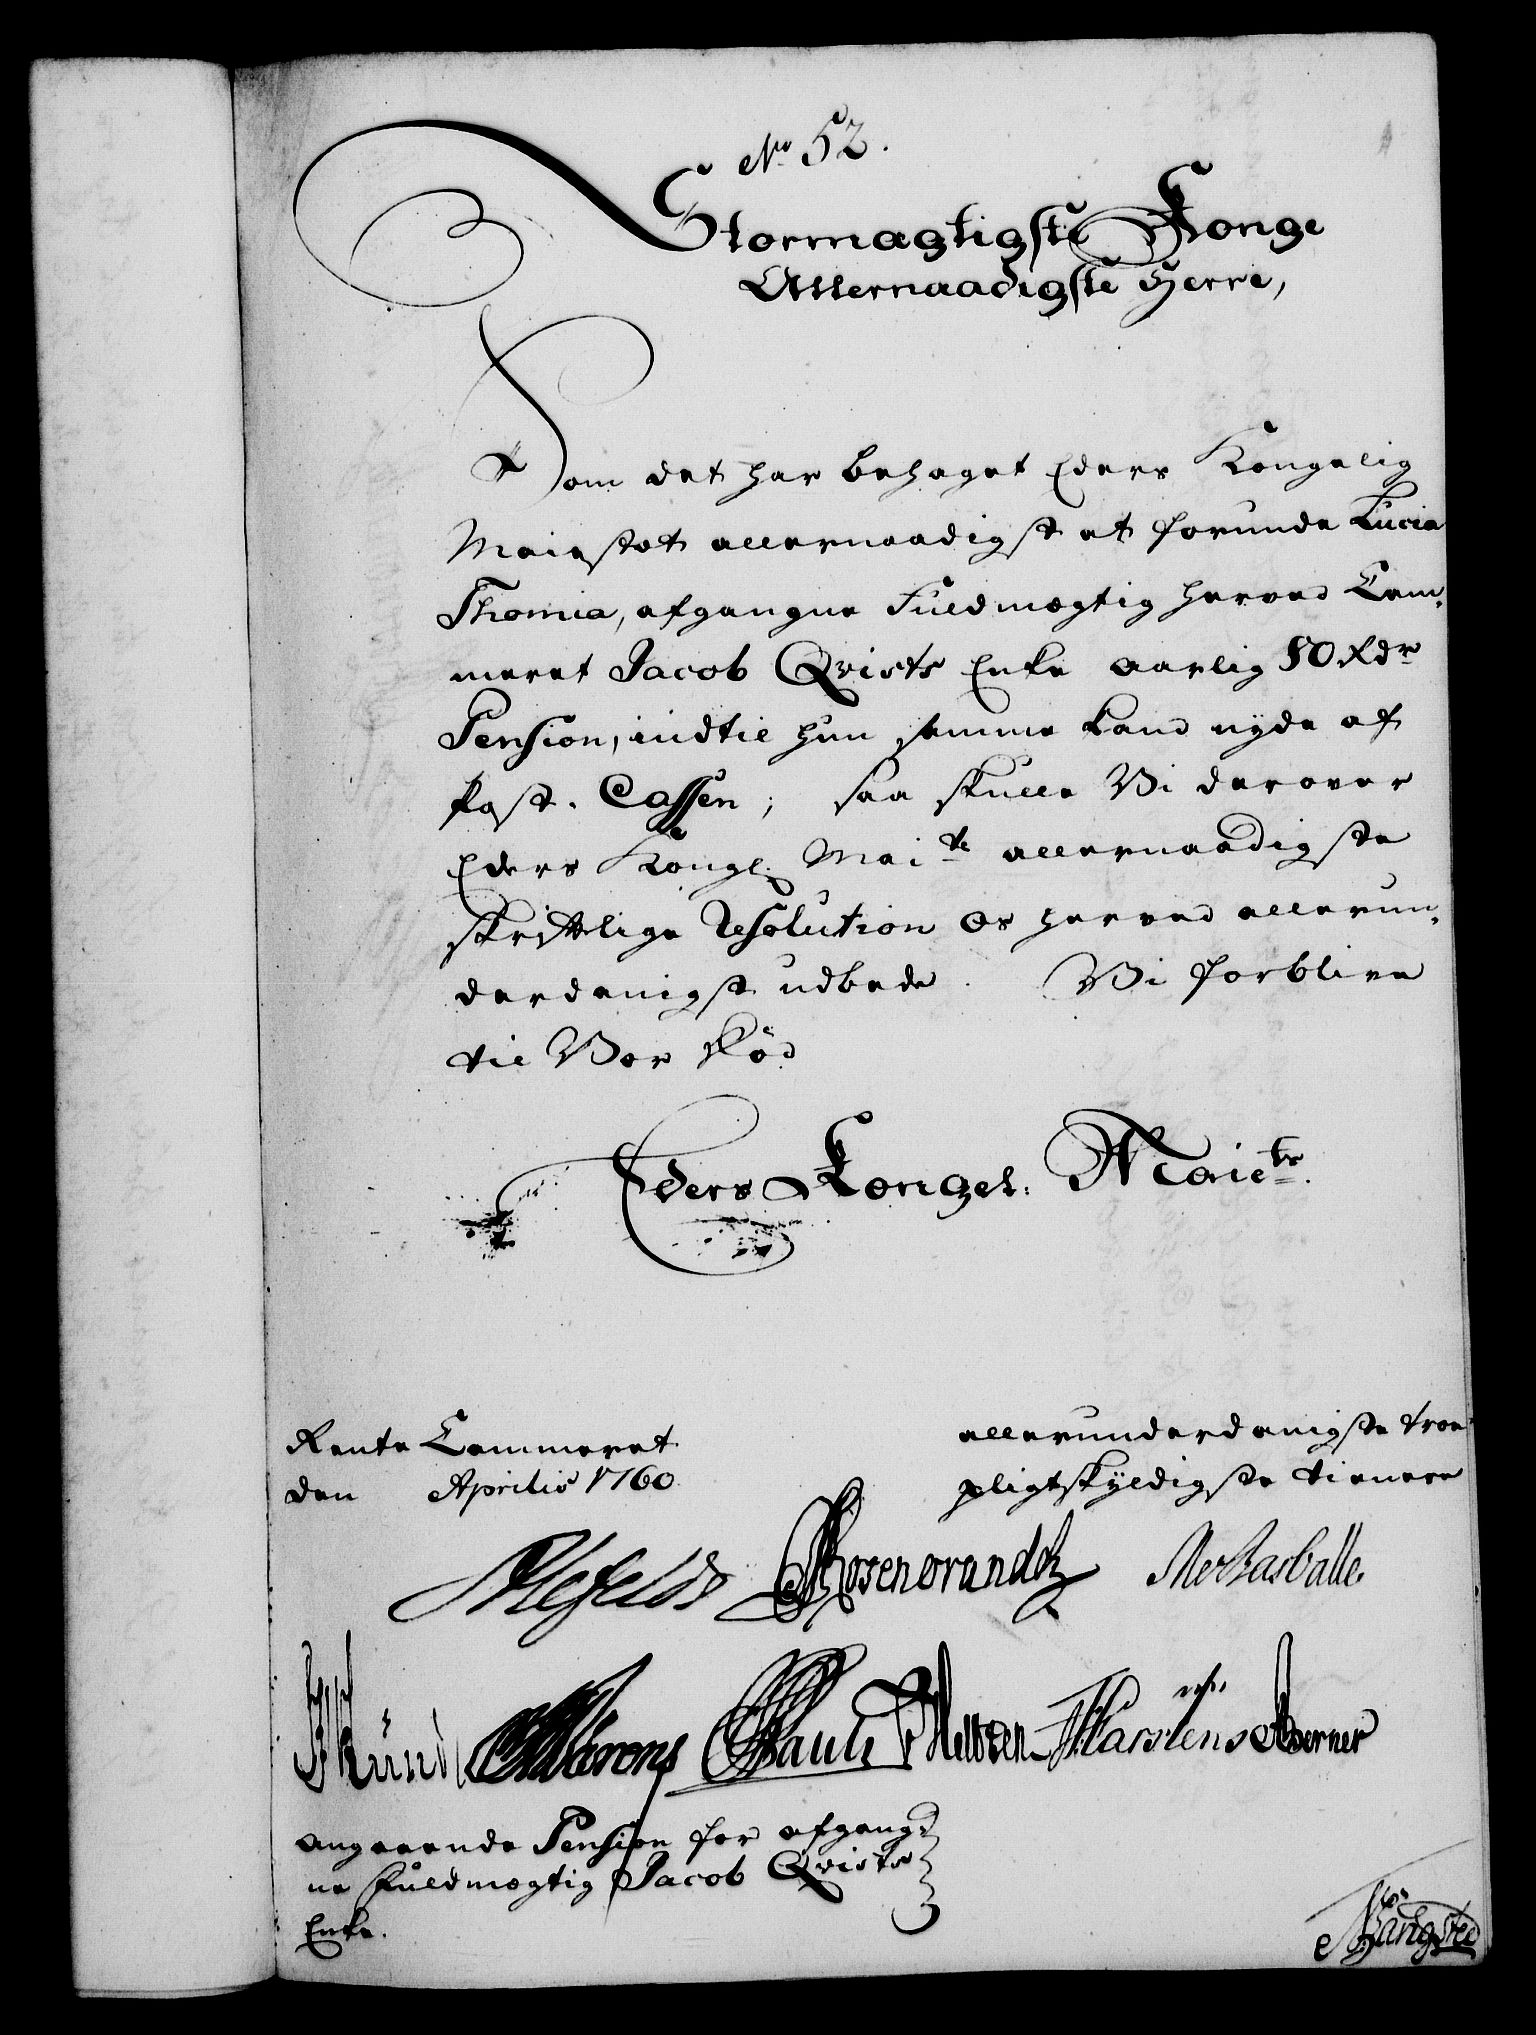 No 52.
Stormægtigste Konge
Allernaadigste Herre,
Som det har behaget Eders Kongelig
Majestet allernaadigst at forunde Lucia
Thomia, afgangne Fuldmægtig herved Cam,
meret Jacob Qvists Enke aarlig 50 Rdr
Pension, indtil hun samme kand nyde af
Post. Cassen; saa skulle Vi derover
Eders Kongl. Maits allernaadigste
skriftlige Resolution os herved allerun,
derdanigst udbede. Vi forblive
til Vor Död
Eders Kongel: Maiets.
Rente Cammeret
den Aprilis 1760
allerunderdanigste troe
pligtskyldigste tienere
Ahlefeldt
Holtzen Karstens Koerner
angaaende Pension for afgang,
ne Fuldmægtig Jacob Qvists
Enke.